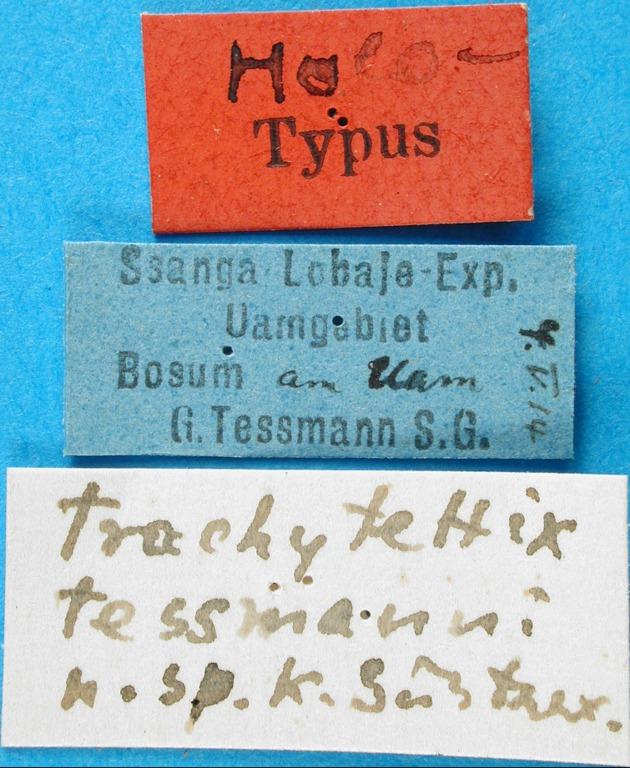 Holo-
Typus
Ssanga Lobaje-Exp.
Uamgebiet
Bosum am Uam
G. Tessmann S.G.
4.V.14
trachytettix
tessmanni
n. sp. K. Günther.